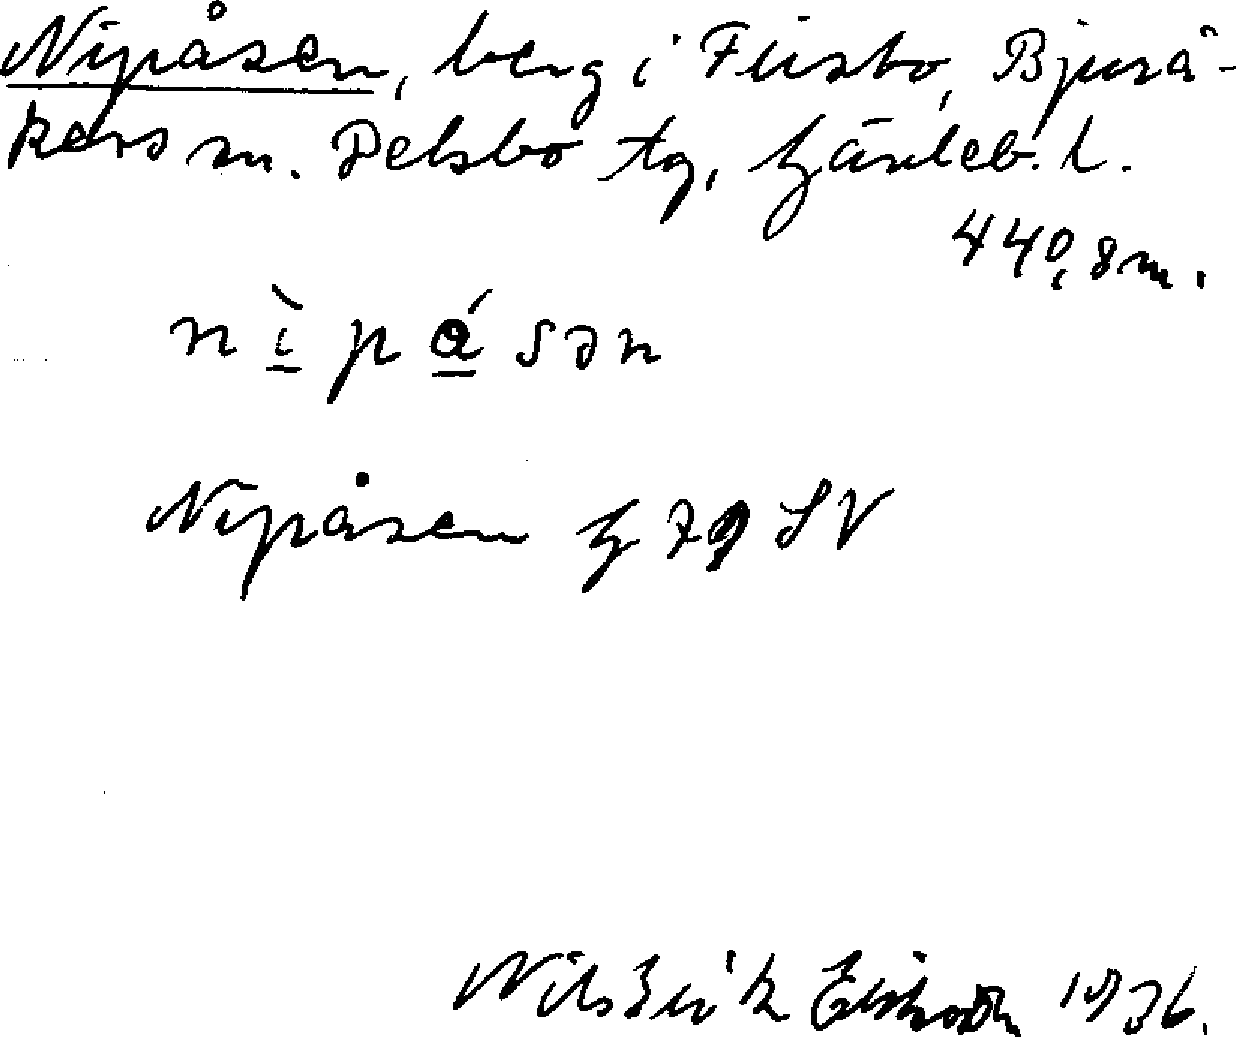 Nipåsen, berg i Frisbo, Bjurå-
kers sn. Delsbo tg, Gävleb. l.
440,8 m.
nìpásən
Nipåsen G 79 SV
Nils Erik 1936.